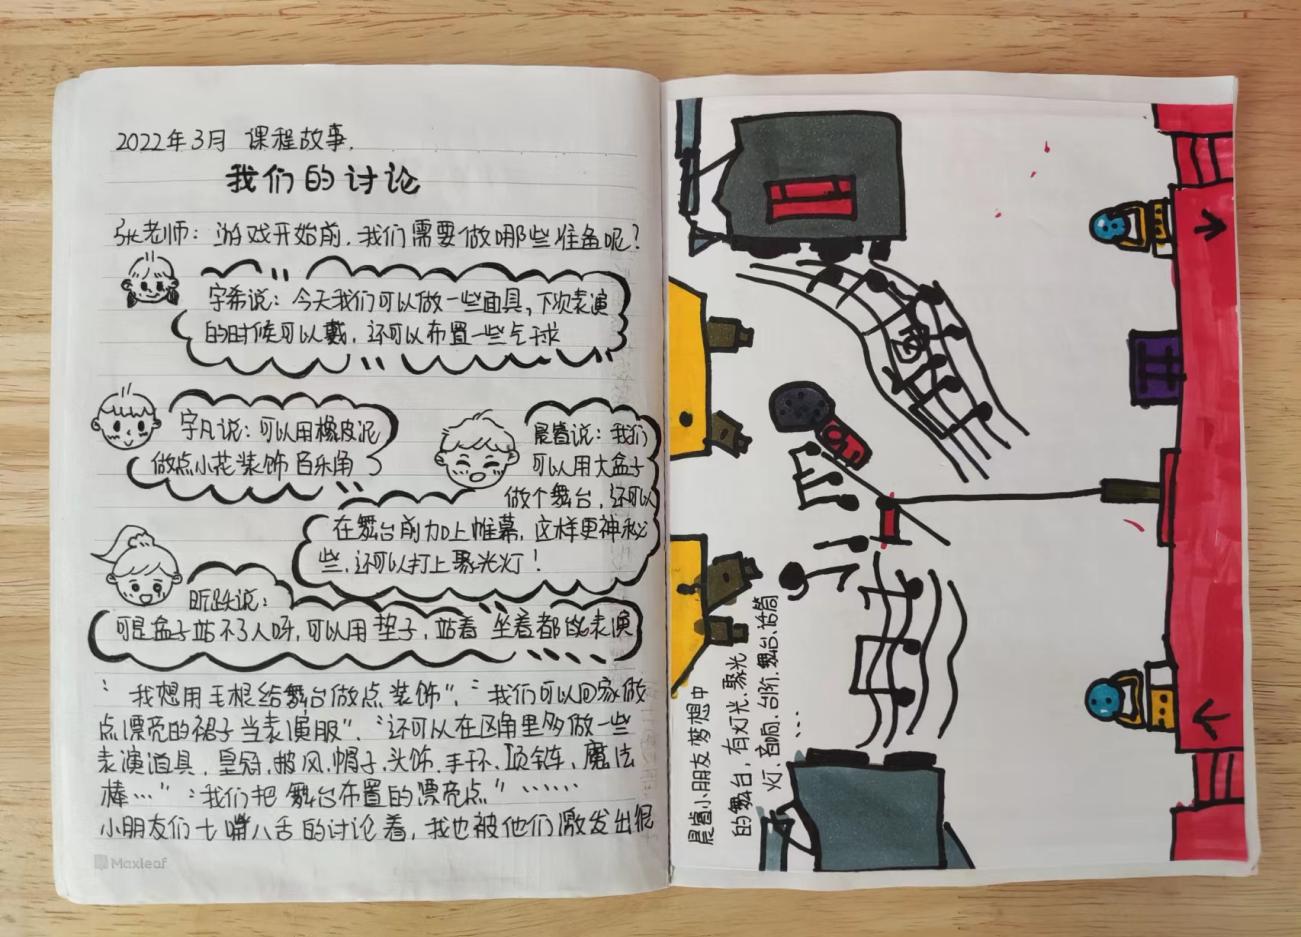 2022年3月 课程故事.
我们的讨论
张老师：游戏开始前，我们需要做哪些准备呢？
宇希说：今天我们可以做一些面具，下次表演
的时候可以戴，还可以布置一些气球
宇凡说：可以用橡皮泥
做点小花装饰音乐角
晨睿说：我们
可以用大盒子
做个舞台，还可以
在舞台前加上帷幕，这样更神秘
些，还可以打上聚光灯！
昕跃说：
可是盒子站不了人呀，可以用垫子，站着坐着都能表演
“我想用毛根给舞台做点装饰”，“我们可以回家做
点漂亮的裙子当表演服”，“还可以在区角里多做一些
表演道具，皇冠，披风，帽子，头饰，手环，项链，魔法
棒…”“我们把舞台布置的漂亮点”……
小朋友们七嘴八舌的讨论着，我也被他们激发出很
Maxleaf
晨睿小朋友梦想中
的舞台，有灯光、聚光
灯、音响、台阶、舞台、话筒
……